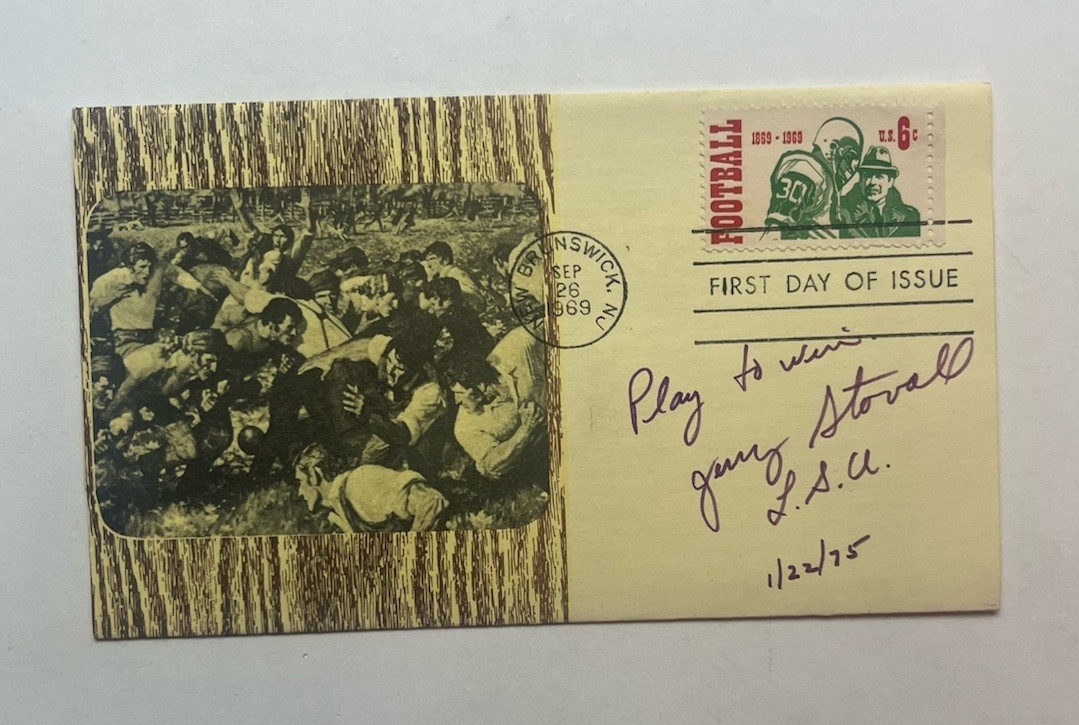 FOOTBALL
1869-1969
U.S. 6c
30
NEW BRUNSWICK, NJ
SEP
26
1969
FIRST DAY OF ISSUE
Play to win.
Jerry Stovall
L.S.U.
1/22/75